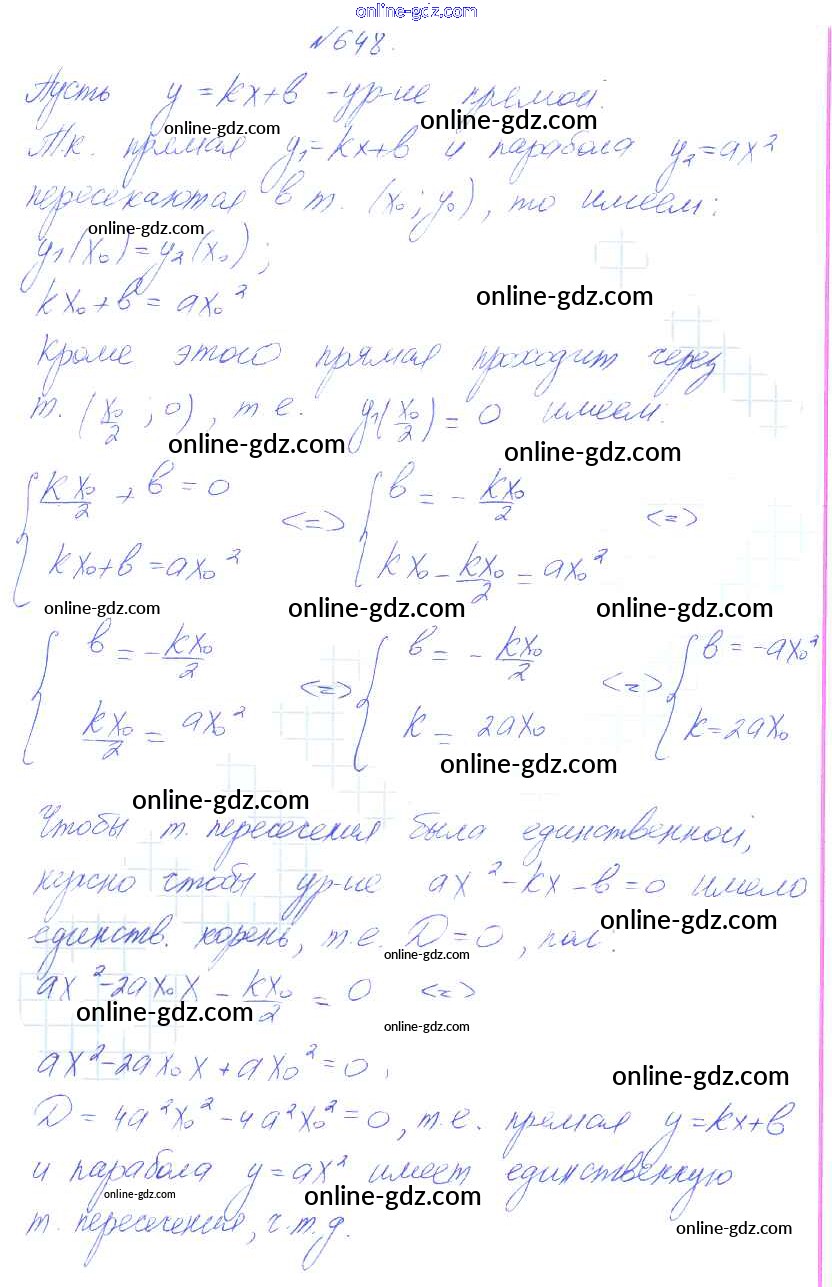 online-gdz.com
№648.
Пусть y = kx+b -ур-ие прямой.
online-gdz.com online-gdz.com
Т.к. прямая y₁=kx+b и парабола y₂=ax²
пересекаются в т. (x₀; y₀), то имеем:
online-gdz.com
y₁(x₀)=y₂(x₀);
kx₀+b = ax₀² online-gdz.com
Кроме этого прямая проходит через
т. (x₀/2 ; 0), т.е. y₁(x₀/2) = 0 имеем:
online-gdz.com online-gdz.com
{ kx₀/2 + b = 0 <=> { b = - kx₀/2 <=>
kx₀+b = ax₀² kx₀ - kx₀/2 = ax₀²
online-gdz.com online-gdz.com online-gdz.com
{ b = - kx₀/2 <=> { b = - kx₀/2 <=> { b = -ax₀²
kx₀/2 = ax₀² k = 2ax₀ k=2ax₀
online-gdz.com
online-gdz.com
Чтобы т. пересечения была единственной,
нужно чтобы ур-ие ax²-kx-b=0 имело
online-gdz.com
единств. корень, т.е. D=0, пол.
online-gdz.com
ax²-2ax₀x - kx₀/2 = 0 <=>
online-gdz.com online-gdz.com
ax²-2ax₀x+ax₀²=0,
online-gdz.com
D = 4a²x₀²-4a²x₀²=0, т.е. прямая y=kx+b
и парабола y=ax² имеет единственную
online-gdz.com online-gdz.com
т. пересечения, ч.т.д.
online-gdz.com